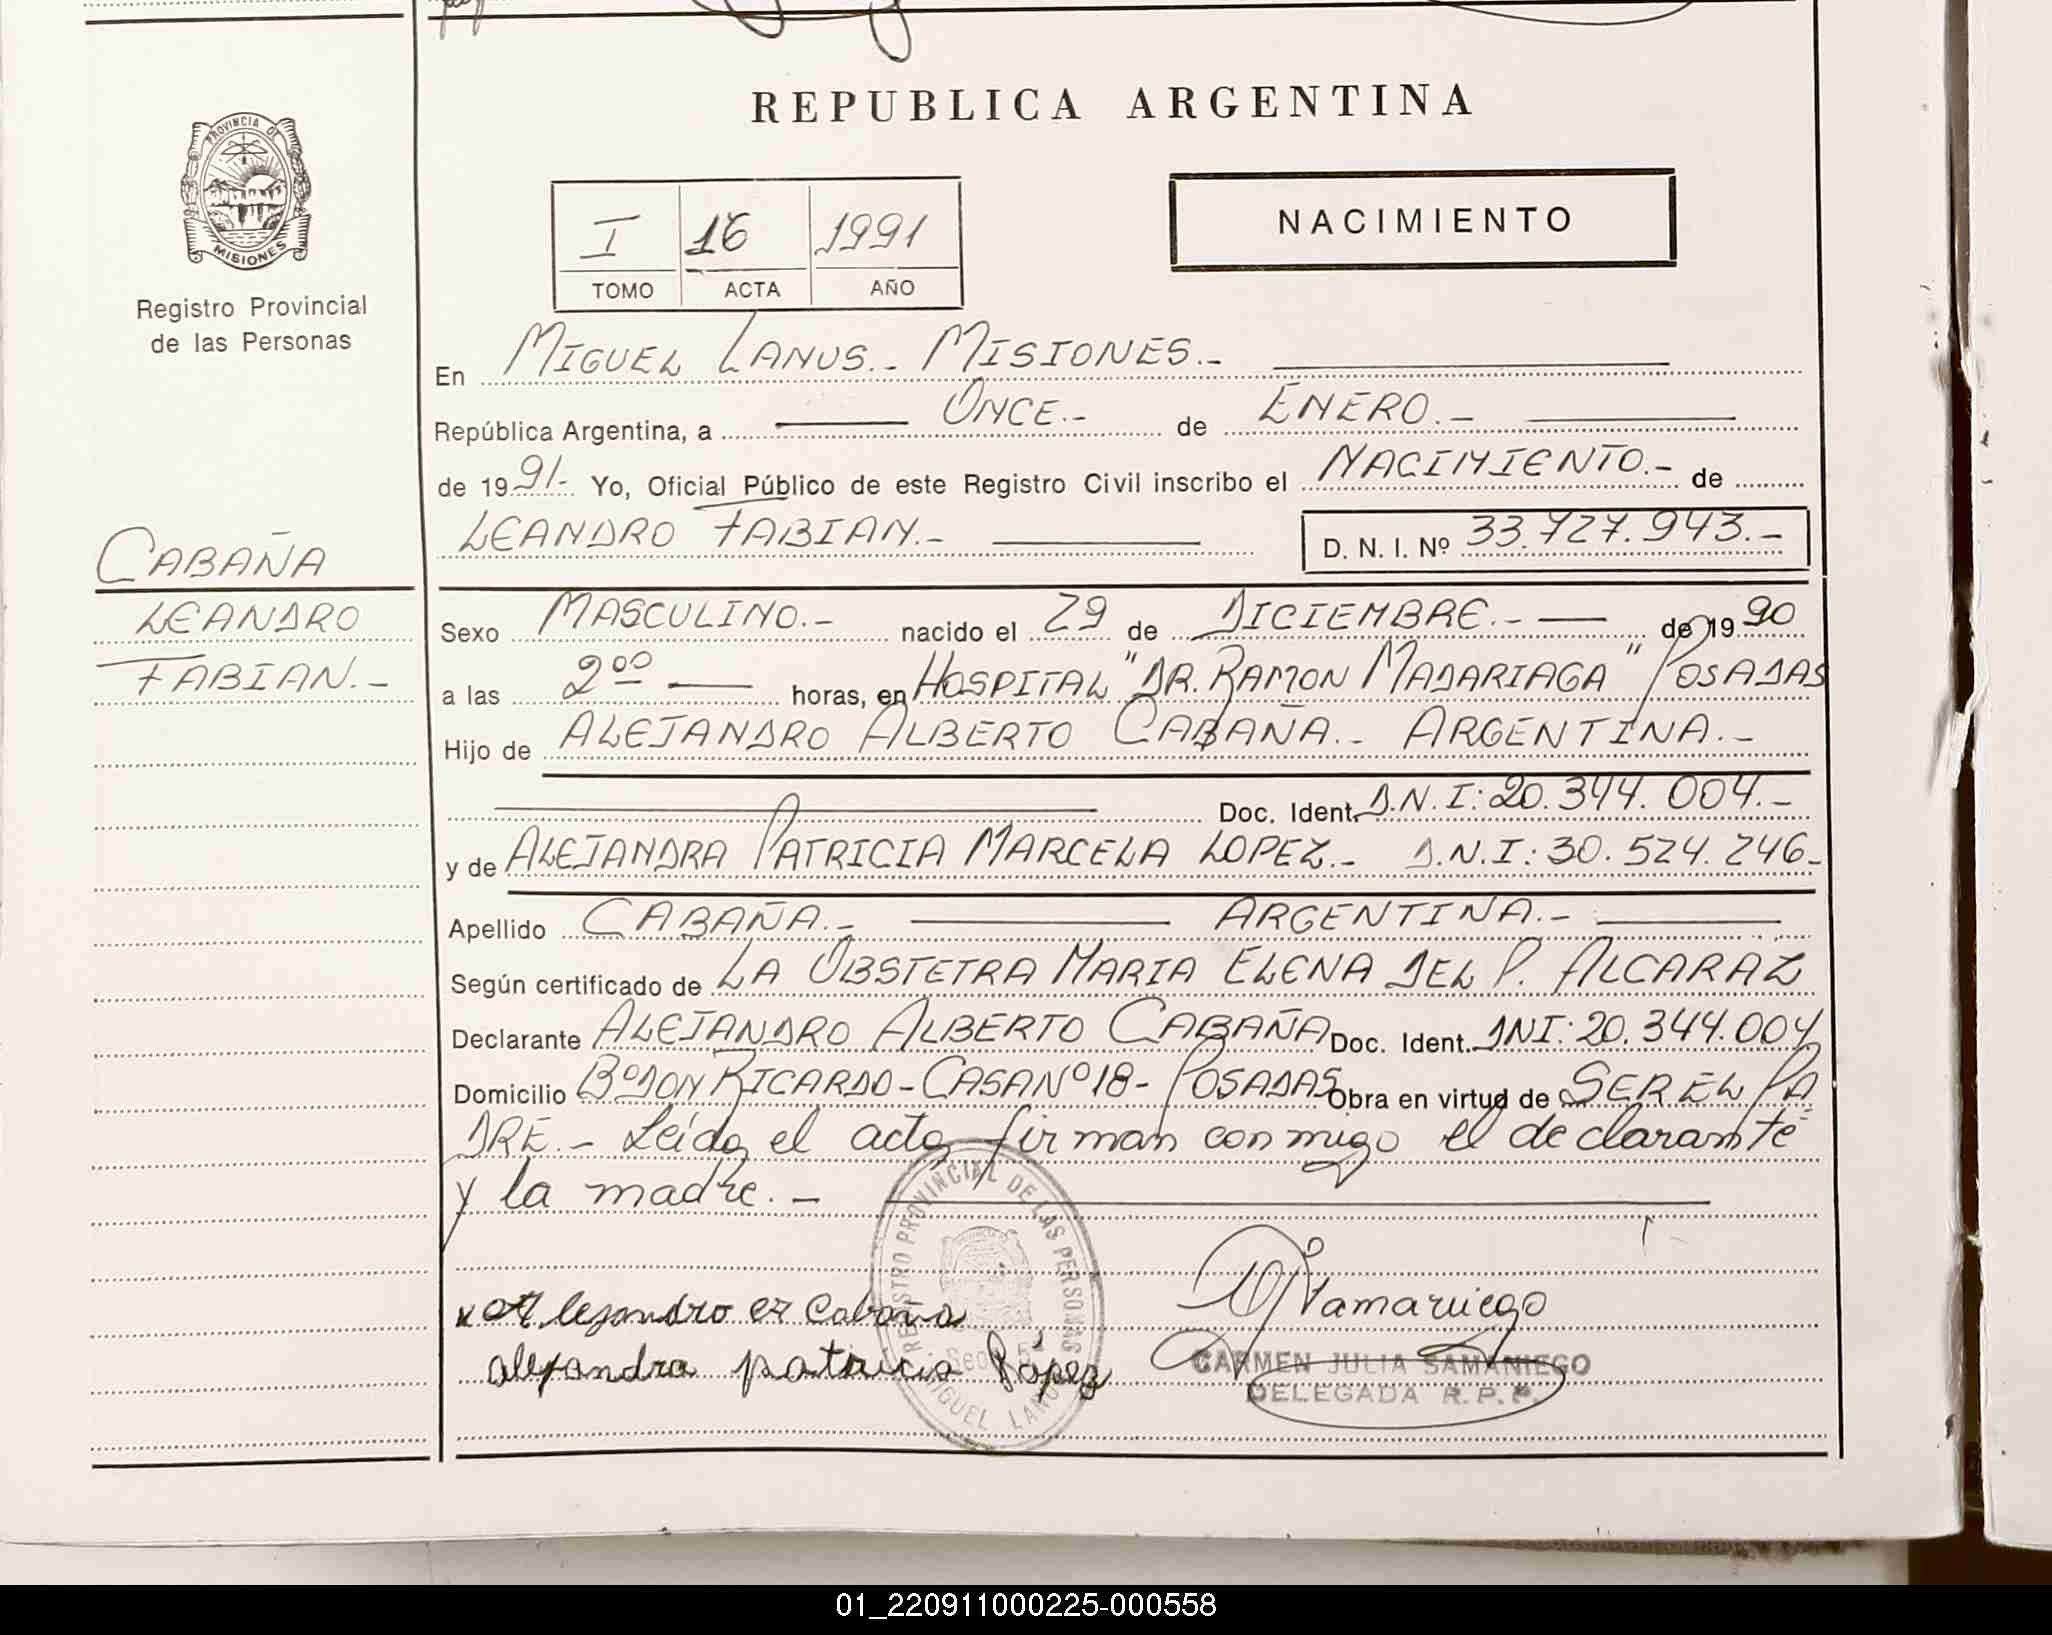 REPUBLICA ARGENTINA
PROVINCIA DE
MISIONES
Registro Provincial
de las Personas
I 16 1991
TOMO ACTA AÑO
NACIMIENTO
En MIGUEL LANUS.- MISIONES.-
República Argentina, a ONCE.- de ENERO.-
de 1991- Yo, Oficial Público de este Registro Civil inscribo el NACIMIENTO.- de
LEANDRO FABIAN.- D. N. I. Nº 33.727.943.-
CABAÑA
LEANDRO
FABIAN.-
Sexo MASCULINO.- nacido el 29 de DICIEMBRE.- de 1990
a las 2⁰⁰ horas, en HOSPITAL "DR. RAMON MADARIAGA" POSADAS
Hijo de ALEJANDRO ALBERTO CABAÑA.- ARGENTINA.-
Doc. Ident. D.N.I: 20.344.004.-
y de ALEJANDRA PATRICIA MARCELA LOPEZ.- D.N.I: 30.524.246-
Apellido CABAÑA.- ARGENTINA.-
Según certificado de LA OBSTETRA MARIA ELENA DEL P. ALCARAZ
Declarante ALEJANDRO ALBERTO CABAÑA Doc. Ident. DNI: 20.344.004
Domicilio Bº DON RICARDO-CASA Nº 18- POSADAS Obra en virtud de SER EL PA
DRE.- Leída el acta, firman conmigo el declarante
y la madre.-
REGISTRO PROVINCIAL DE LAS PERSONAS
MIGUEL LANUS
Alejandro Cabaña
alejandra patricia Lopez
CARMEN JULIA SAMANIEGO
DELEGADA R.P.P.
01_220911000225-000558